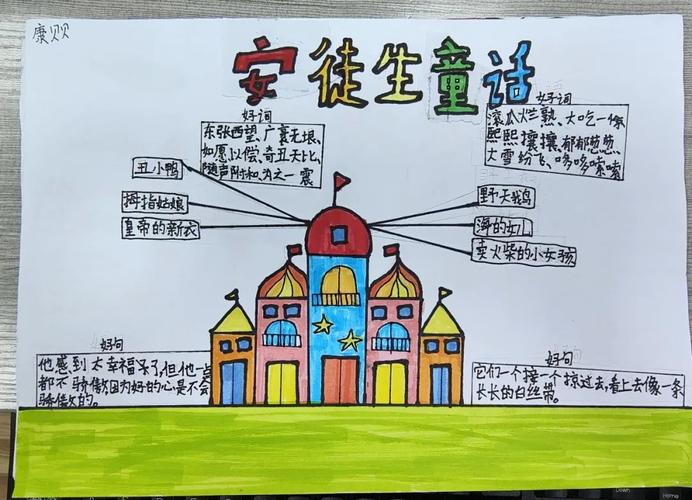 康贝贝
安徒生童话
好词
东张西望、广袤无垠、
如愿以偿、奇丑无比、
随声附和、为之一震
好词
滚瓜烂熟、大吃一惊
熙熙攘攘、郁郁葱葱、
大雪纷飞、哆哆嗦嗦
丑小鸭
拇指姑娘
皇帝的新衣
野天鹅
海的女儿
卖火柴的小女孩
好句
他感到太幸福了,但他一点
都不骄傲因为好的心是不会
骄傲的。
好句
它们一个接一个掠过去,看上去像一条
长长的白丝带。